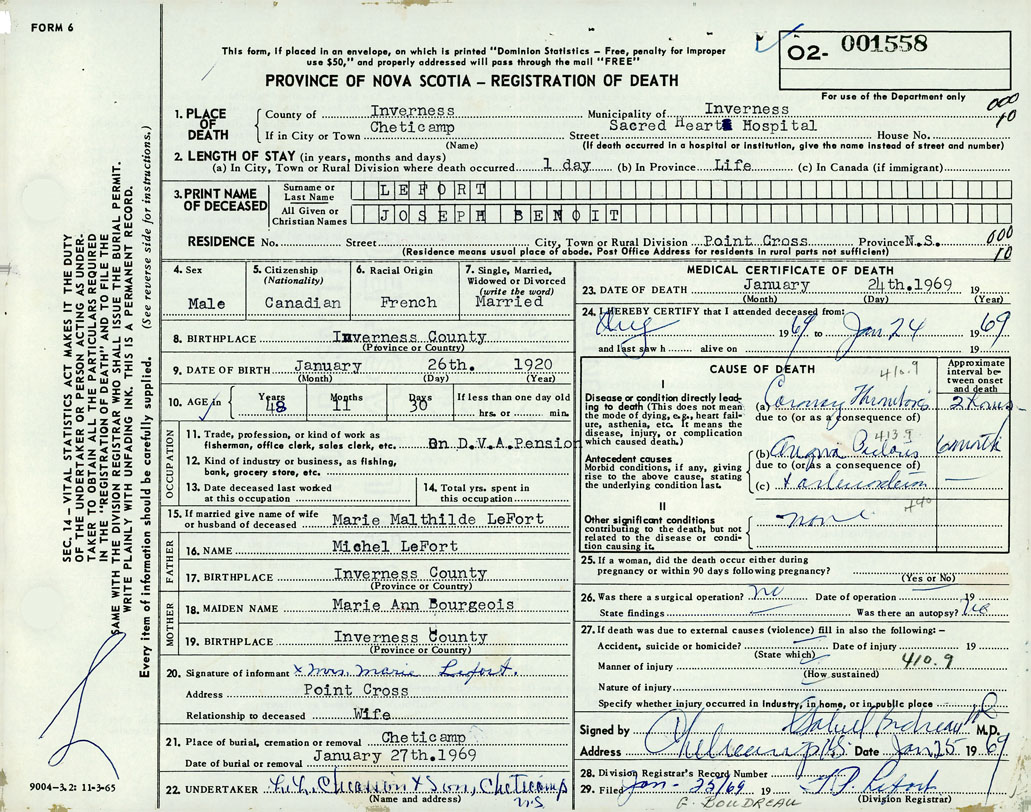 FORM 6
This form, if placed in an envelope, on which is printed "Dominion Statistics – Free, penalty for improper
use $50," and properly addressed will pass through the mail "FREE"
PROVINCE OF NOVA SCOTIA – REGISTRATION OF DEATH
02- 001558
For use of the Department only
000
10
1. PLACE OF DEATH
County of Inverness Municipality of Inverness
If in City or Town Cheticamp Street Sacred Heart Hospital House No.
(Name) (If death occurred in a hospital or institution, give the name instead of street and number)
2. LENGTH OF STAY (in years, months and days)
(a) In City, Town or Rural Division where death occurred 1 day (b) In Province Life (c) In Canada (if immigrant)
3. PRINT NAME OF DECEASED
Surname or Last Name LEFORT
All Given or Christian Names JOSEPH BENOIT
RESIDENCE No. Street City, Town or Rural Division Point Cross Province N.S.
000
10
(Residence means usual place of abode. Post Office Address for residents in rural parts not sufficient)
4. Sex Male
5. Citizenship (Nationality) Canadian
6. Racial Origin French
7. Single, Married, Widowed or Divorced (write the word) Married
8. BIRTHPLACE Inverness County
(Province or Country)
9. DATE OF BIRTH January 26th. 1920
(Month) (Day) (Year)
10. AGE in Years Months Days If less than one day old
48 11 30 hrs. or min.
OCCUPATION
11. Trade, profession or kind of work as
fisherman, office clerk, sales clerk, etc. On D.V.A.Pension
12. Kind of industry or business, as fishing,
bank, grocery store, etc.
13. Date deceased last worked
at this occupation
14. Total yrs. spent in
this occupation
15. If married give name of wife
or husband of deceased Marie Malthilde LeFort
FATHER
16. NAME Michel LeFort
17. BIRTHPLACE Inverness County
(Province or Country)
MOTHER
18. MAIDEN NAME Marie Ann Bourgeois
19. BIRTHPLACE Inverness County
(Province or Country)
20. Signature of informant x Mrs. Marie Lefort.
Address Point Cross
Relationship to deceased Wife
21. Place of burial, cremation or removal Cheticamp
Date of burial or removal January 27th.1969
22. UNDERTAKER & Son, Cheticamp
NS
(Name and address)
MEDICAL CERTIFICATE OF DEATH
23. DATE OF DEATH January 24th.1969 19
(Month) (Day) (Year)
24. I HEREBY CERTIFY that I attended deceased from:
Aug 1969 to Jan 24 1969
and last saw h alive on 19
CAUSE OF DEATH
410.9
Approximate interval between onset and death
I
Disease or condition directly leading to death (This does not mean the mode of dying, e.g., heart failure, asthenia, etc. It means the disease, injury, or complication which caused death.)
(a) Coronary Thrombosis
due to (or as a consequence of)
413.9
Antecedent causes
Morbid conditions, if any, giving rise to the above cause, stating the underlying condition last.
(b) Angina Pectoris 6 month
due to (or as a consequence of)
(c)
440
II
Other significant conditions
contributing to the death, but not related to the disease or condition causing it.
none
25. If a woman, did the death occur either during
pregnancy or within 90 days following pregnancy?
(Yes or No)
26. Was there a surgical operation? no Date of operation 19
State findings Was there an autopsy? No
27. If death was due to external causes (violence) fill in also the following: –
Accident, suicide or homicide? Date of injury 19
(State which)
Manner of injury 410.9
(How sustained)
Nature of injury
Specify whether injury occurred in industry, in home, or in public place
Signed by Gabriel Boudreau MD M.D.
Address Cheticamp NS Date Jan 25 1969
28. Division Registrar's Record Number
29. Filed Jan - 25/69 19 Lefort
(Division Registrar)
G. BOUDREAU
SEC. 14 – VITAL STATISTICS ACT MAKES IT THE DUTY
OF THE UNDERTAKER OR PERSON ACTING AS UNDER-
TAKER TO OBTAIN ALL THE PARTICULARS REQUIRED
IN THE "REGISTRATION OF DEATH" AND TO FILE THE
SAME WITH THE DIVISION REGISTRAR WHO SHALL ISSUE THE BURIAL PERMIT.
WRITE PLAINLY WITH UNFADING INK. THIS IS A PERMANENT RECORD.
Every item of information should be carefully supplied. (See reverse side for instructions.)
9004–3.2: 11-3-65